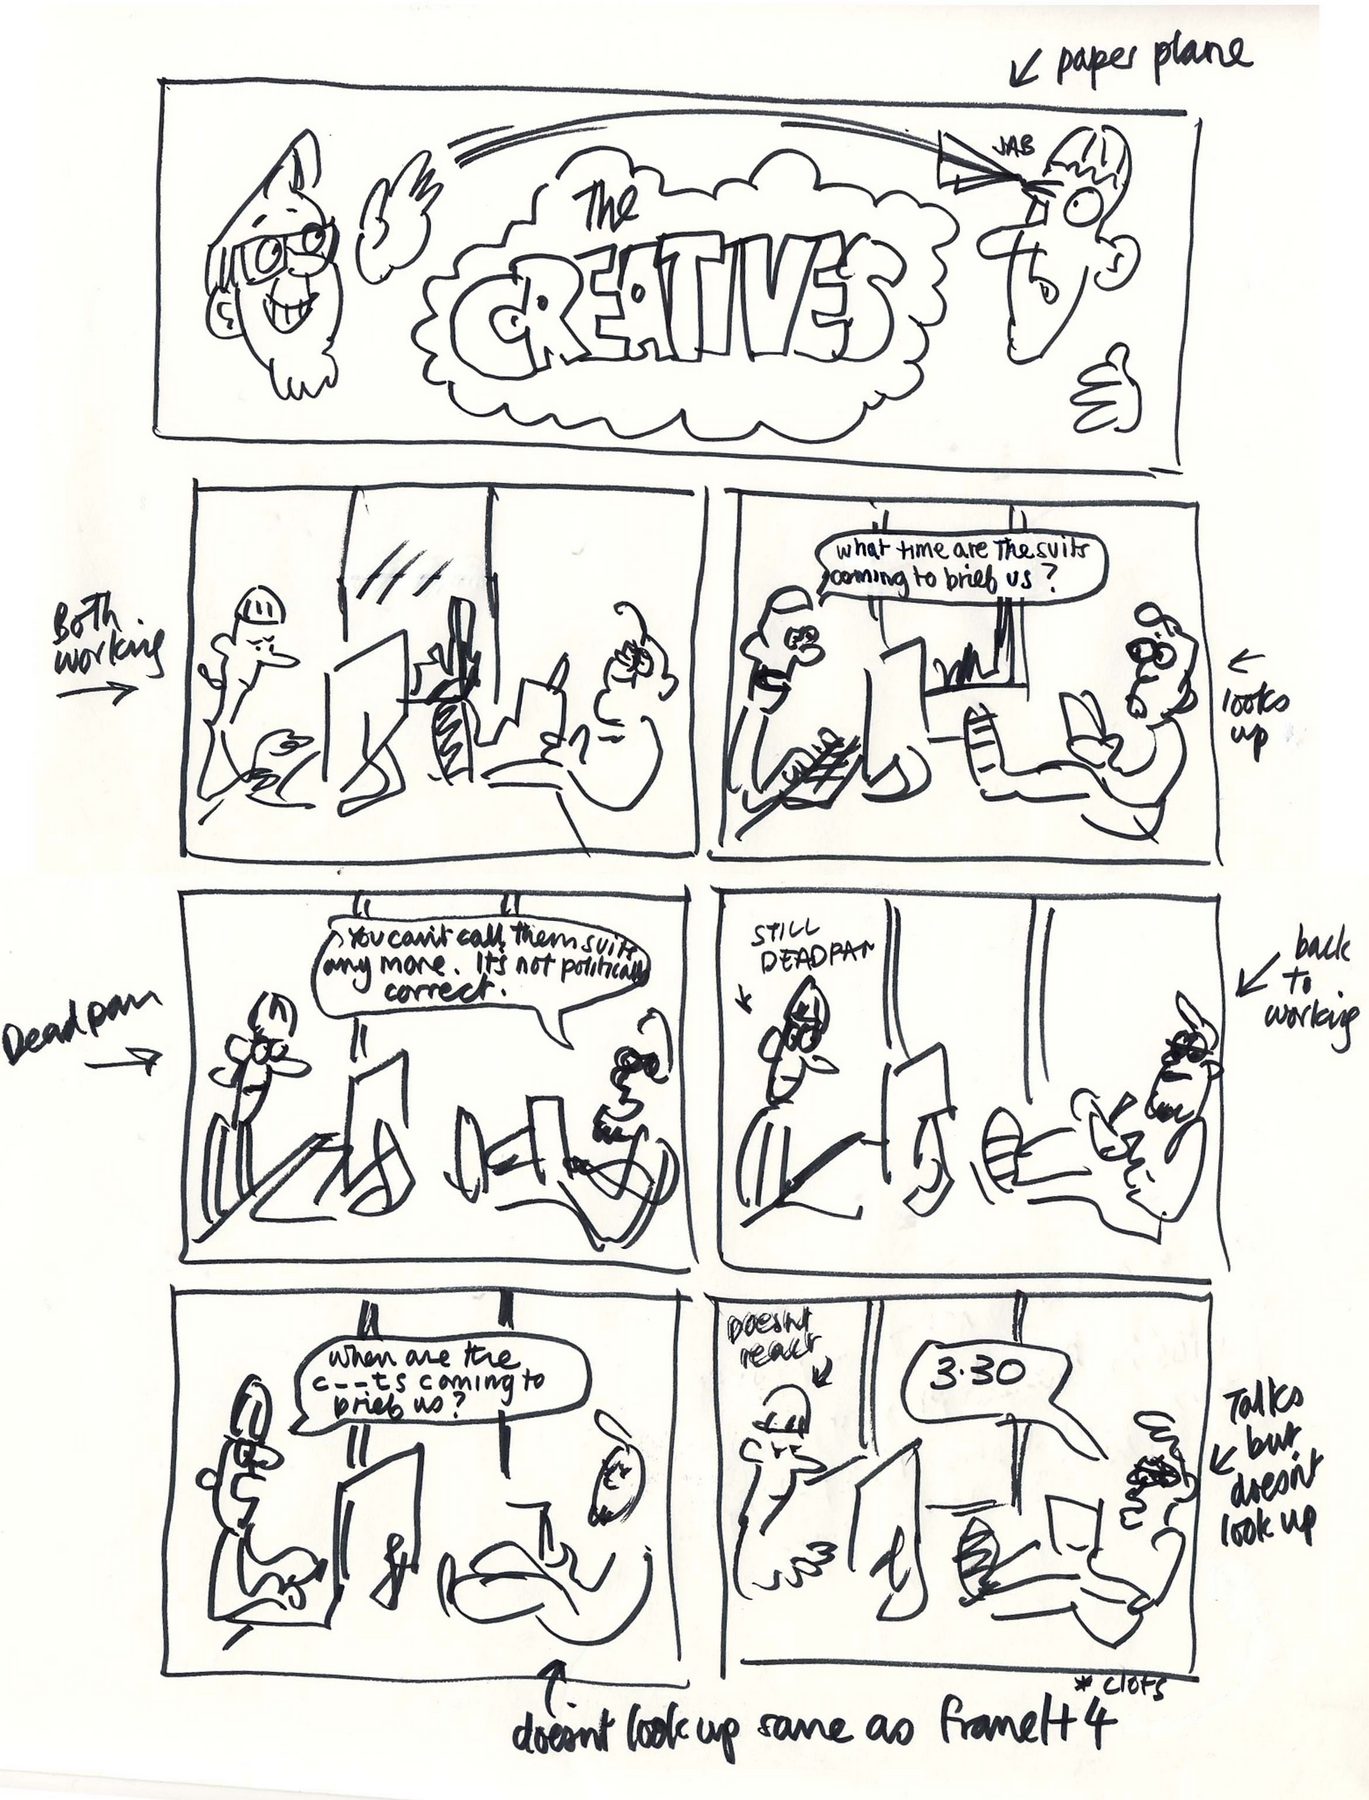 paper plane
JAB
The
CREATIVES
Both
working
what time are the suits
coming to brief us?
looks
up
Deadpan
You can't call them suits
any more. It's not politically
correct.
STILL
DEADPAN
back
to
working
when are the
c--ts coming to
brief us?
Doesnt
react
3.30
Talks
but
doesn't
look up
* clots
doesn't look up same as frame 1+4